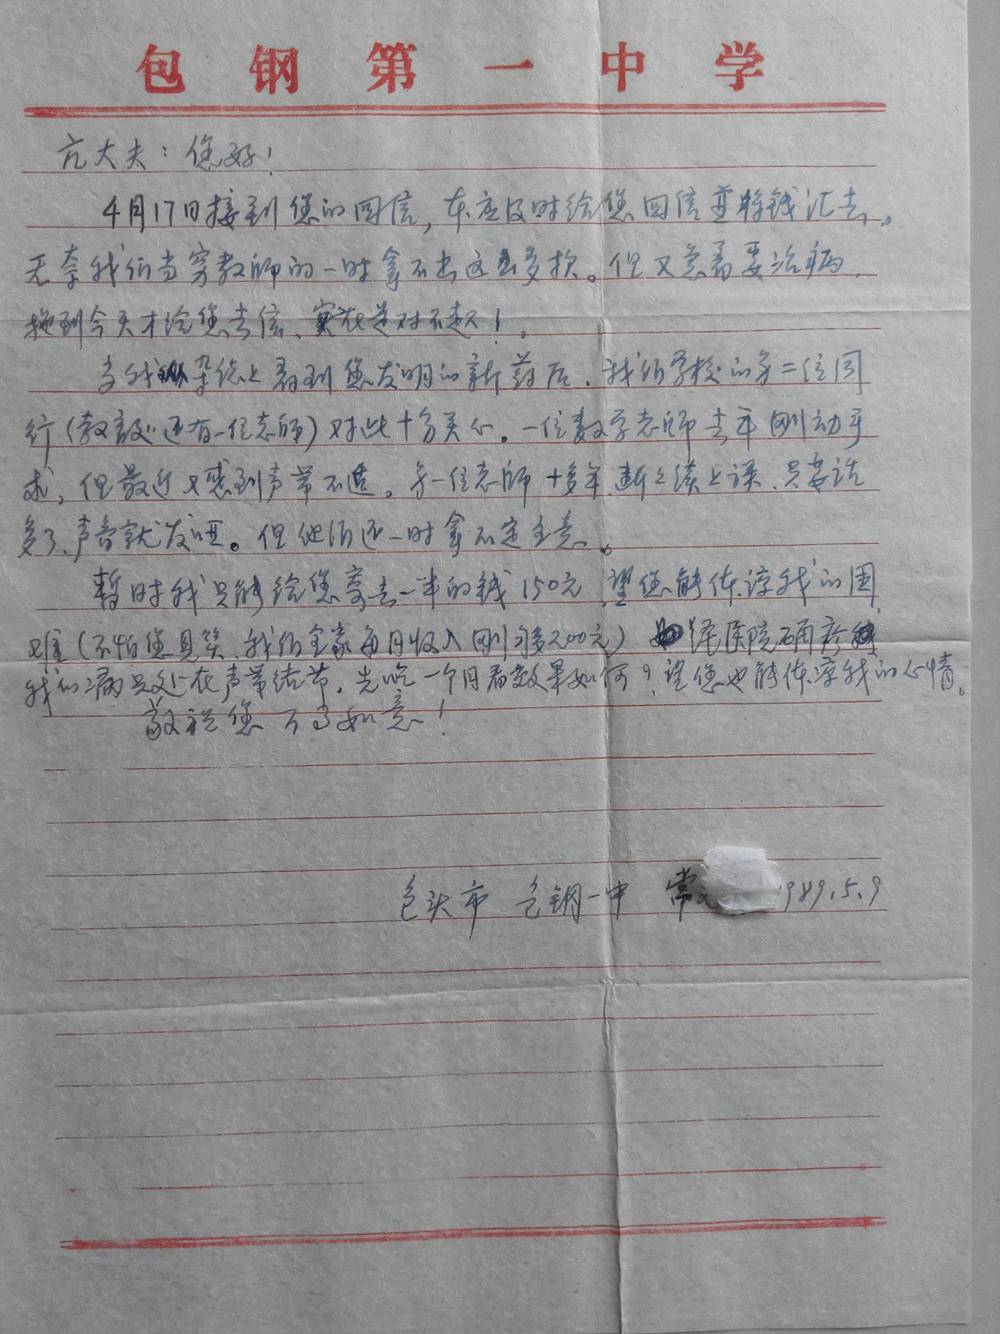 包钢第一中学
亢大夫：您好！
4月17日接到您的回信，本应及时给您回信并将钱汇去。
无奈我们当穷教师的一时拿不出这么多款。但又急需要治病，
拖到今天才给您去信、实在是对不起！。
当我从杂志上看到您发明的新药后，我们学校的另二位同
行（还有一位老师）对此十分关心。一位数学老师去年刚动手
术，但最近又感到声带不适。另一位老师十多年断断续续上课，只要话
多了、声音就发哑。但他们还一时拿不定主意。
暂时我只能给您寄去一半的钱150元，望您能体谅我的困
难（不怕您见笑、我们全家每月收入刚够200元）经医院确诊
我的病只处在声带结节，先吃一个月看效果如何？望您也能体谅我的心情。
敬祝您 万事如意！
包头市 包钢一中 常 1989.5.9